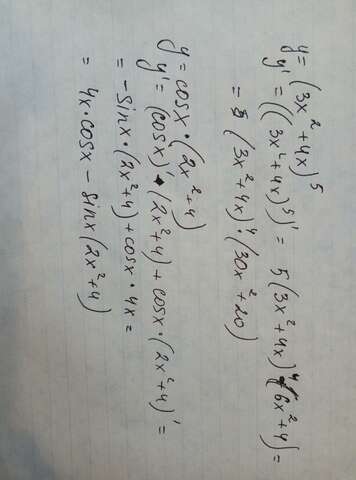 y = (3x² + 4x)⁵
y' = ((3x² + 4x)⁵)' = 5(3x² + 4x)⁴ (6x² + 4) =
= (3x² + 4x)⁴ (30x² + 20)
y = cosx · (2x² + 4)
y' = (cosx)' · (2x² + 4) + cosx · (2x² + 4)' =
= -sinx · (2x² + 4) + cosx · 4x =
= 4x · cosx - sinx (2x² + 4)